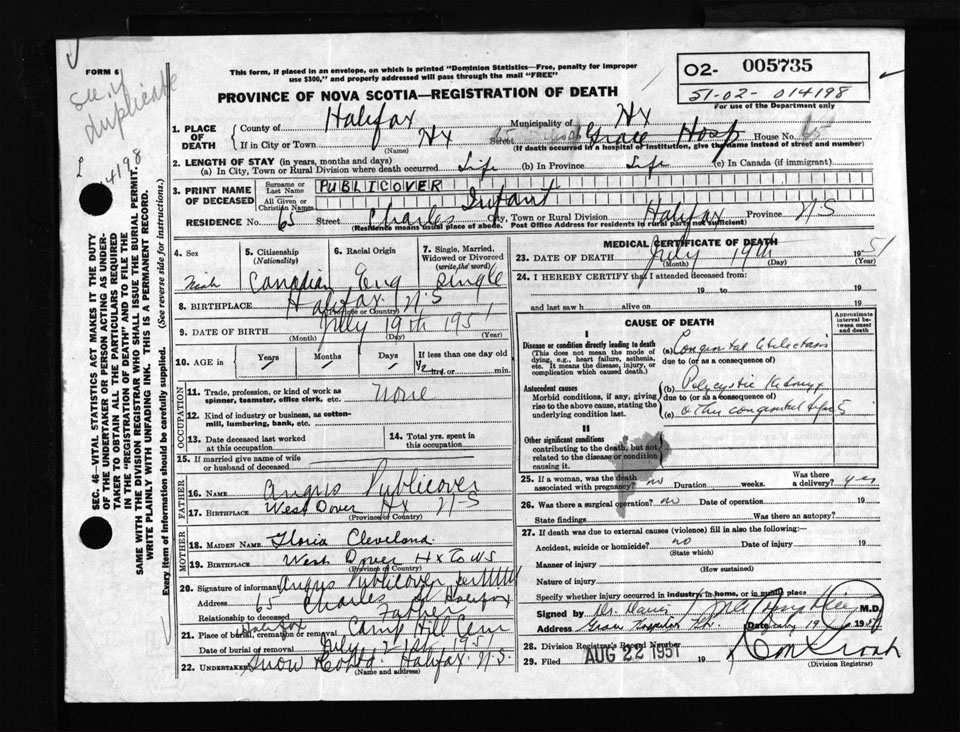 FORM 6
see if duplicate
4198
This form, if placed in an envelope, on which is printed "Dominion Statistics—Free, penalty for improper
use $300," and properly addressed will pass through the mail "FREE"
O2- 005735
51-02-014198
For use of the Department only
PROVINCE OF NOVA SCOTIA—REGISTRATION OF DEATH
1. PLACE OF DEATH
County of Halifax Municipality of Hx
If in City or Town Hx (Name) Street Grace Hosp House No. 65
(If death occurred in a hospital or institution, give the name instead of street and number)
2. LENGTH OF STAY (in years, months and days)
(a) In City, Town or Rural Division where death occurred Life (b) In Province Life (c) In Canada (if immigrant)
3. PRINT NAME OF DECEASED
Surname or Last Name PUBLICOVER
All Given or Christian Names Infant
RESIDENCE No. 65 Street Charles City, Town or Rural Division Halifax Province N.S
(Residence means usual place of abode. Post Office Address for residents in rural parts not sufficient)
4. Sex
5. Citizenship (Nationality) Canadian
6. Racial Origin Eng
7. Single, Married, Widowed or Divorced (write the word) Single
8. BIRTHPLACE Halifax N.S
(Province or Country)
9. DATE OF BIRTH July 19th 1951
(Month) (Day) (Year)
10. AGE in Years Months Days If less than one day old
1/2 hrs. or min.
OCCUPATION
11. Trade, profession, or kind of work as spinner, teamster, office clerk, etc. None
12. Kind of industry or business, as cotton-mill, lumbering, bank, etc.
13. Date deceased last worked at this occupation
14. Total yrs. spent in this occupation
15. If married give name of wife or husband of deceased
FATHER
16. NAME Angus Publicover
17. BIRTHPLACE West Dover Hx N-S
(Province or Country)
MOTHER
18. MAIDEN NAME Gloria Cleveland
19. BIRTHPLACE West Dover Hx Co N S
(Province or Country)
20. Signature of informant Angus Publicover
Address 65 Charles St Halifax
Relationship to deceased Father
21. Place of burial, cremation or removal Halifax Camp Hill Cem
Date of burial or removal July 21st 1951
22. Undertaker Snow Co Ltd. Halifax N.S.
(Name and address)
MEDICAL CERTIFICATE OF DEATH
23. DATE OF DEATH July 19th 1951
(Month) (Day) (Year)
24. I HEREBY CERTIFY that I attended deceased from
19 to 19
and last saw h alive on 19
CAUSE OF DEATH
Approximate interval between onset and death
I
Disease or condition directly leading to death
(This does not mean the mode of dying, e.g., heart failure, asthenia, etc. It means the disease, injury, or complication which caused death.)
(a) Congenital Atelectasis
due to (or as a consequence of)
Antecedent causes
Morbid conditions, if any, giving rise to the above cause, stating the underlying condition last.
(b) Polycystic Kidney
due to (or as a consequence of)
(c) other congenital defects
II
Other significant conditions contributing to the death, but not related to the disease or condition causing it.
25. If a woman, was the death associated with pregnancy? no Duration weeks. Was there a delivery? yes
26. Was there a surgical operation? no Date of operation 19
State findings Was there an autopsy?
27. If death was due to external causes (violence) fill in also the following:—
Accident, suicide or homicide? no Date of injury 19
(State which)
Manner of injury
(How sustained)
Nature of injury
Specify whether injury occurred in industry, in home, or in public place
Signed by M.D.
Address Grace Hospital Hx. Date July 19 19
28. Division Registrar's Record Number
29. Filed AUG 22 1951 19
(Division Registrar)
SEC. 46—VITAL STATISTICS ACT MAKES IT THE DUTY
OF THE UNDERTAKER OR PERSON ACTING AS UNDER-
TAKER TO OBTAIN ALL THE PARTICULARS REQUIRED
IN THE "REGISTRATION OF DEATH" AND TO FILE THE
SAME WITH THE DIVISION REGISTRAR WHO SHALL ISSUE THE BURIAL PERMIT.
WRITE PLAINLY WITH UNFADING INK. THIS IS A PERMANENT RECORD.
Every item of information should be carefully supplied. (See reverse side for instructions.)